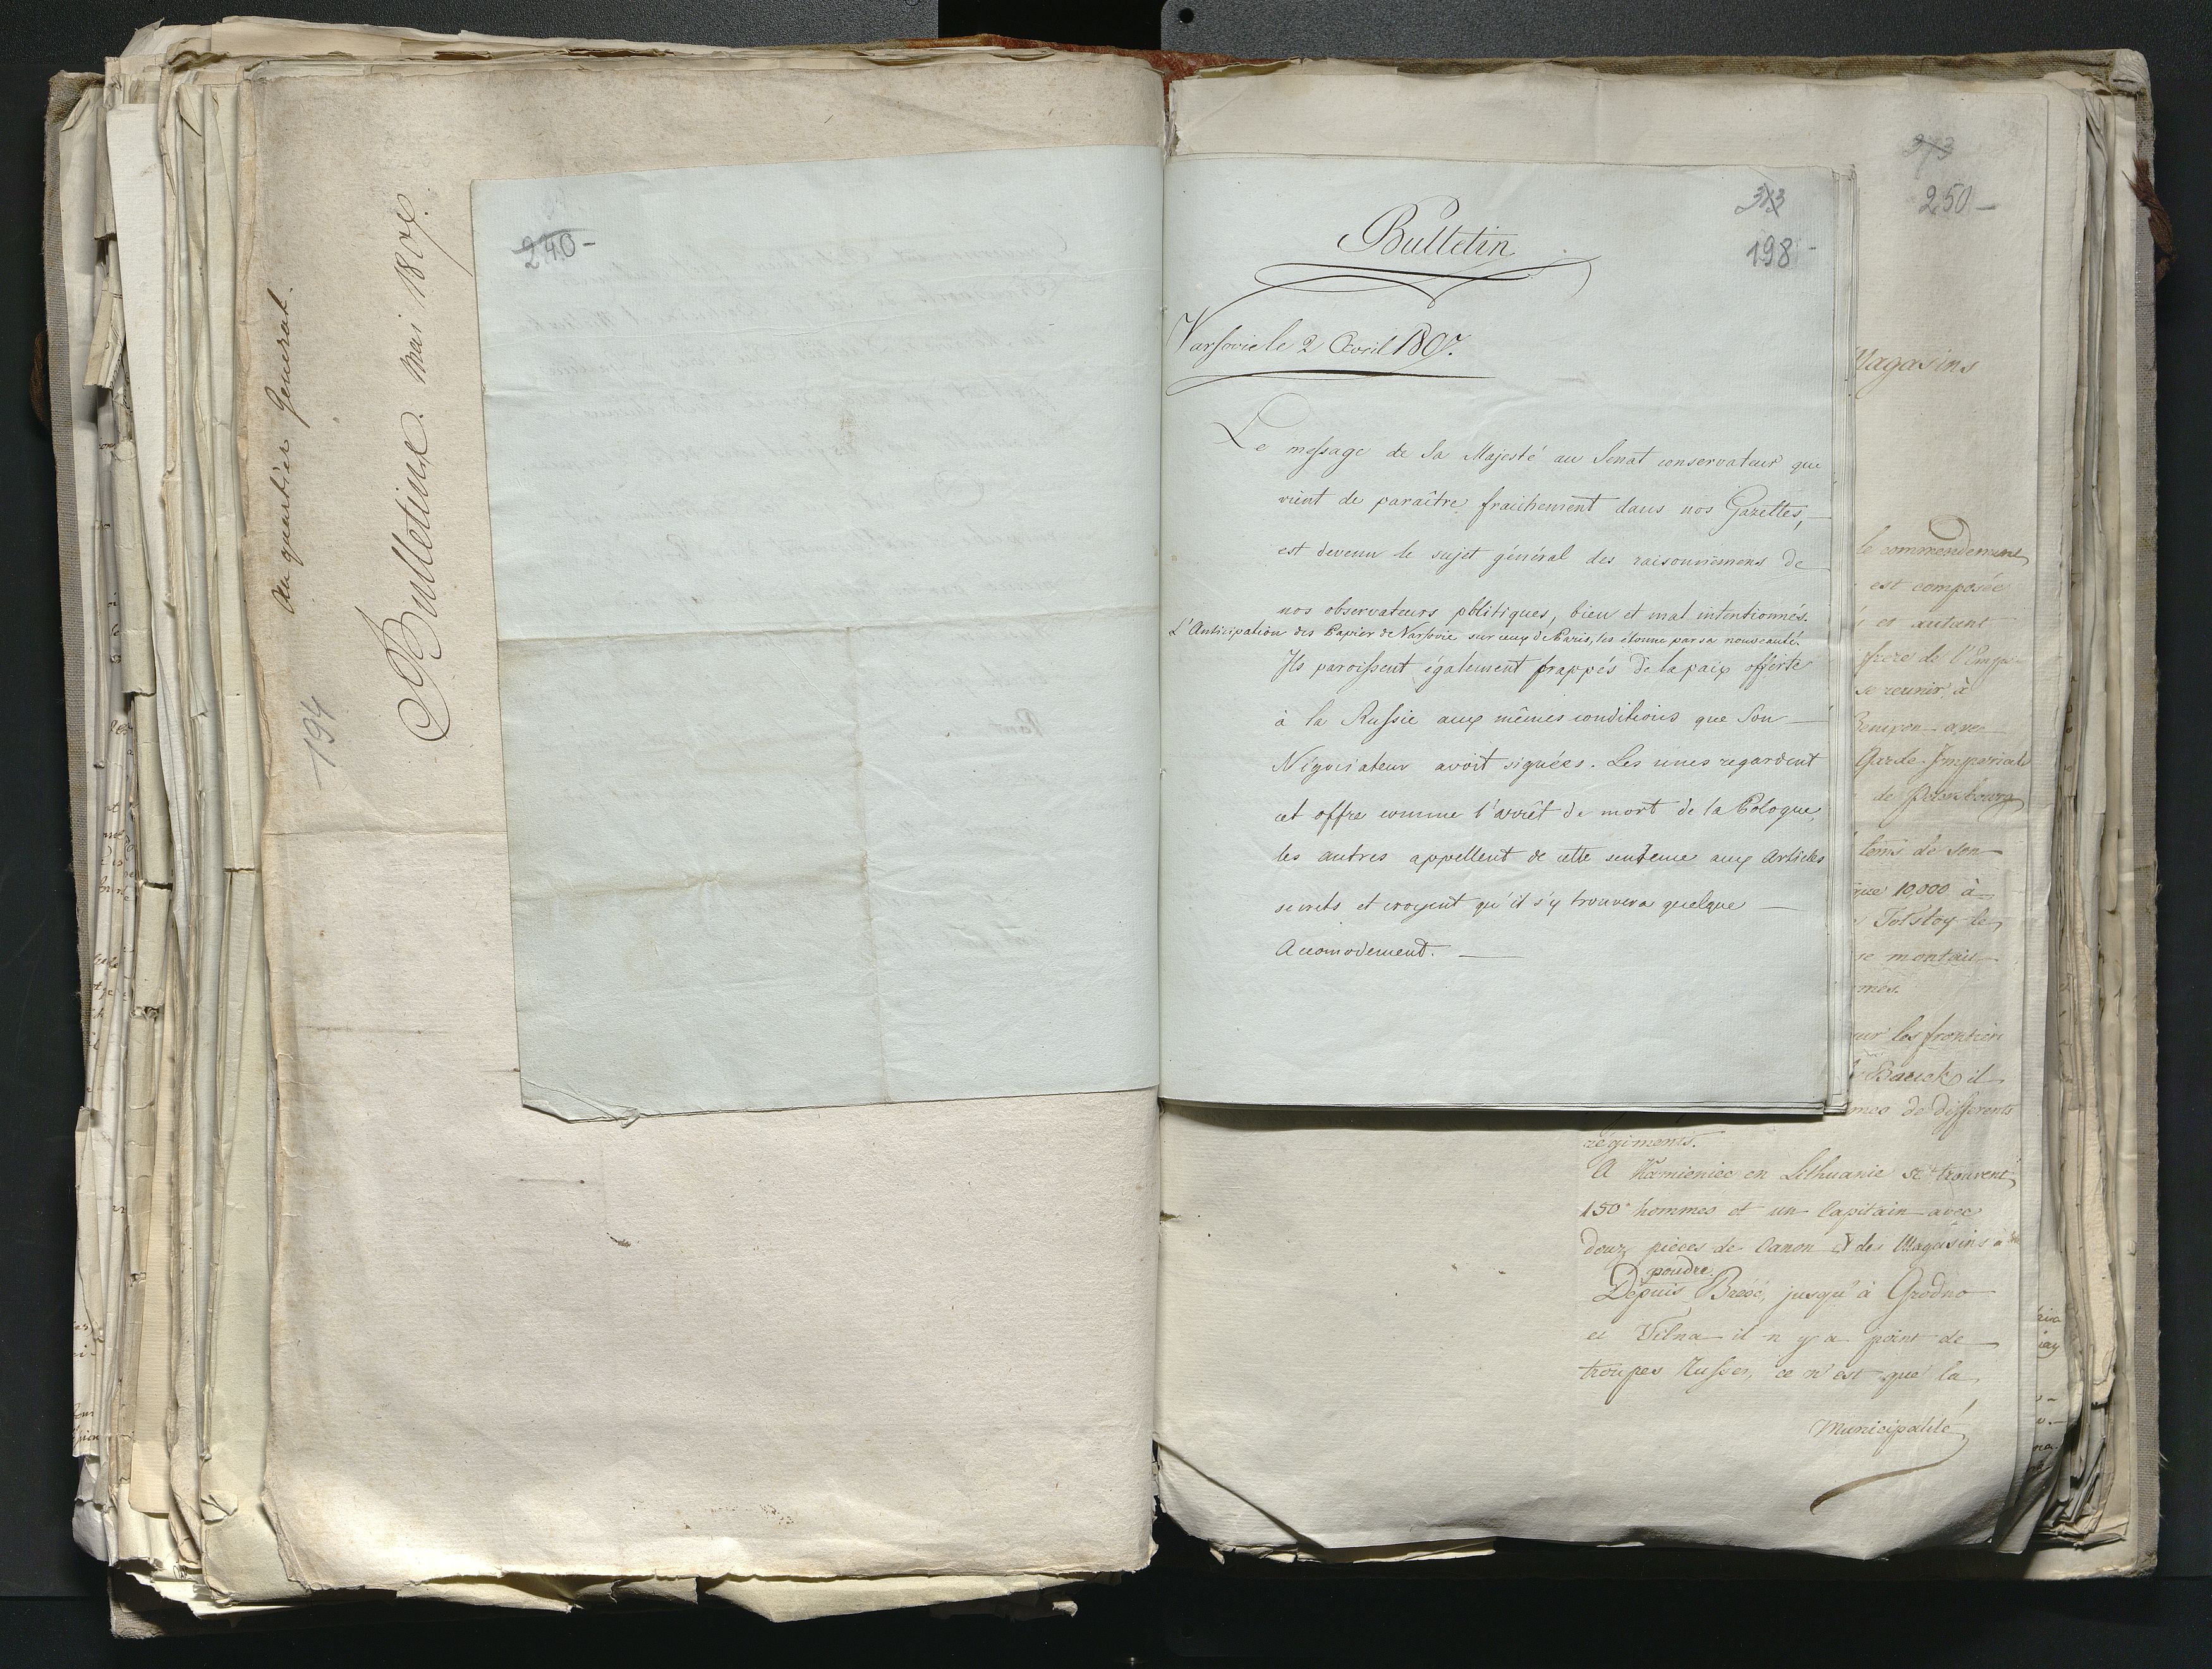 Au quartier General.
Bulletins. mai 1807.
194
240-
Bulletin
313
198-
Varsovie le 2 Avril 1807.
Le message de Sa Majesté au Senat conservateur que
vient de paraître fraichement dans nos Gazettes,
est devenu le sujet général des raisonnemens de
nos observateurs politiques, bien et mal intentionnés.
L'Anticipation des Papier de Varsovie sur ceux de Paris, les étonne par sa nouveauté.
Ils paroissent également frappés de la paix offerte
à la Russie aux mêmes conditions que Son
Négociateur avoit signées. Les unes regardent
cet offre comme l'arrêt de mort de la Pologne,
les autres appellent de cette sentence aux Articles
secrets et croyent qu'il s'y trouvera quelque
Accomodement.
273
250-
Magasins
le commendement
est composée
et autant
frere de l'Empe
se reunir à
Garde Imperiale
de Petersbourg
tems de son
que 10,000 à
Tolstoy le
se montait
mes.
sur les frontier
il
mes de differents
régiments.
A Kamieniec en Lithuanie se trouvent
150 hommes et un Capitain avec
douz pieces de Canon et des Magasins a
poudre.
Depuis Bresc, jusqu'à Grodno
et Vilna il n y a point de
troupes Russes, ce n'est que la
Municipalité